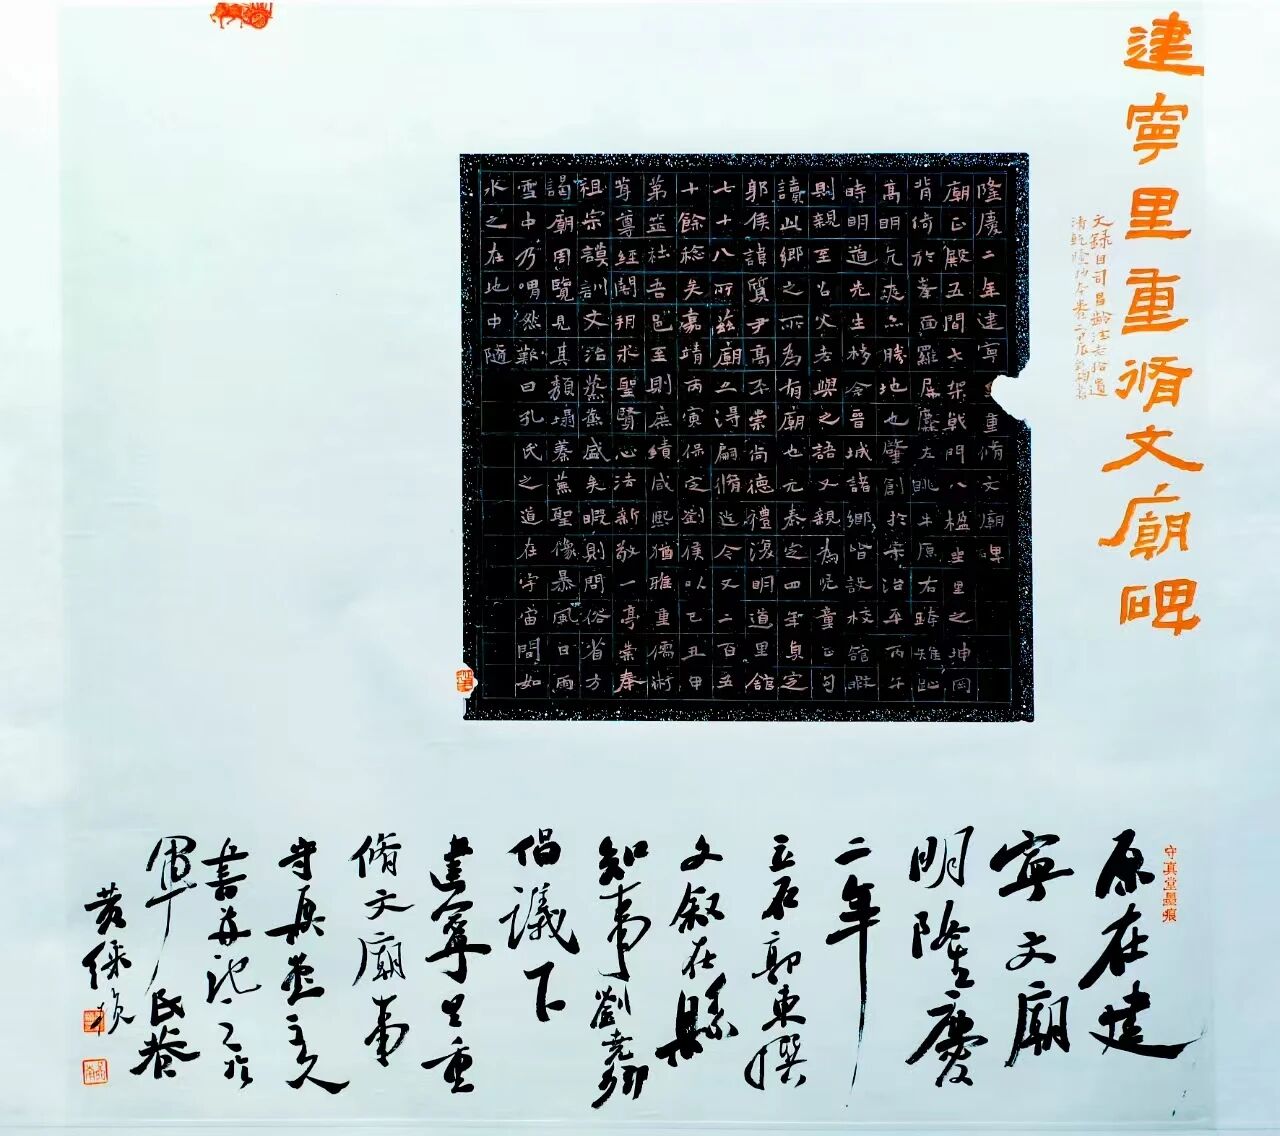 建寧里重脩文廟碑
文錄自司昌齡法先拾遺
清乾隆抄本卷二
隆慶二年建寧里重脩文廟碑
廟正殿五間七架戟門八楹坐里之坤岡
背倚於峯面羅屏麓左眺牛原右跨雉山
高明亢爽亦勝地也肇創於宋治平丙午
時明道先生移令晉城諸鄉皆設校館暇
則親至召父老與之語又親為児童正句
讀此鄉之所為有廟也元泰定四年貞定
郭侯諱質尹高平崇尚德禮復明道里館
七十八所茲廟亦得嗣脩迄今又二百五
十餘稔矣嘉靖丙寅保定劉侯以乙丑甲
第莅社吾邑至則庶績咸熙猶雅重儒術
首尊經閣朔求聖賢心法新敬一亭崇奉
祖宗謨訓文治蒸蒸盛矣暇則問俗省方
謁廟周覽見其頹塌蓁蕪聖像暴風日雨
雪中乃喟然歎曰孔氏之道在宇宙間如
水之在地中隨
守真堂墨痕
原在建
寧文廟
明隆慶
二年
立石郭東撰
文叙在縣
知事劉堯卿
倡議下
建寧里重
脩文廟事
守真堂主人
書并記之於
軍廠氏養